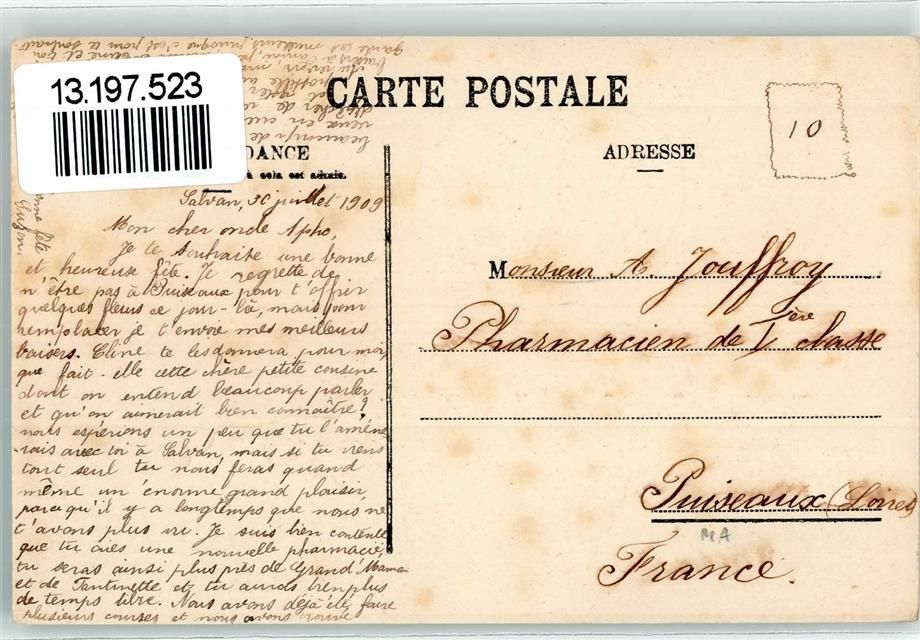 13.197.523
CARTE POSTALE
DANCE
à cela est admis.
ADRESSE
10
Salvan, 30 juillet 1909
Mon cher oncle Alpho,
Je te souhaite une bonne
et heureuse fête. Je regrette de
n'être pas à Puiseaux pour t'offrir
quelques fleurs ce jour-là, mais pour
remplacer je t'envoie mes meilleurs
baisers. Eline te les donnera pour moi
que fait-elle cette chère petite cousine
dont on entend beaucoup parler
et qu'on aimerait bien connaître?
nous espérions un peu que tu l'amène
-rais avec toi à Salvan, mais si tu viens
tout seul tu nous feras quand
même un énorme grand plaisir,
parce qu'il y a longtemps que nous ne
t'avons plus vu. Je suis bien contente
que tu aies une nouvelle pharmacie,
tu seras ainsi plus près de Grand'Maman
et de Tantinette et tu auras bien plus
de temps libre. Nous avons déjà été faire
plusieurs courses et nous avons trouvé
beaucoup de
Monsieur A. Jouffroy
Pharmacien de 1ère classe
Puiseaux (Loiret)
MA
France.